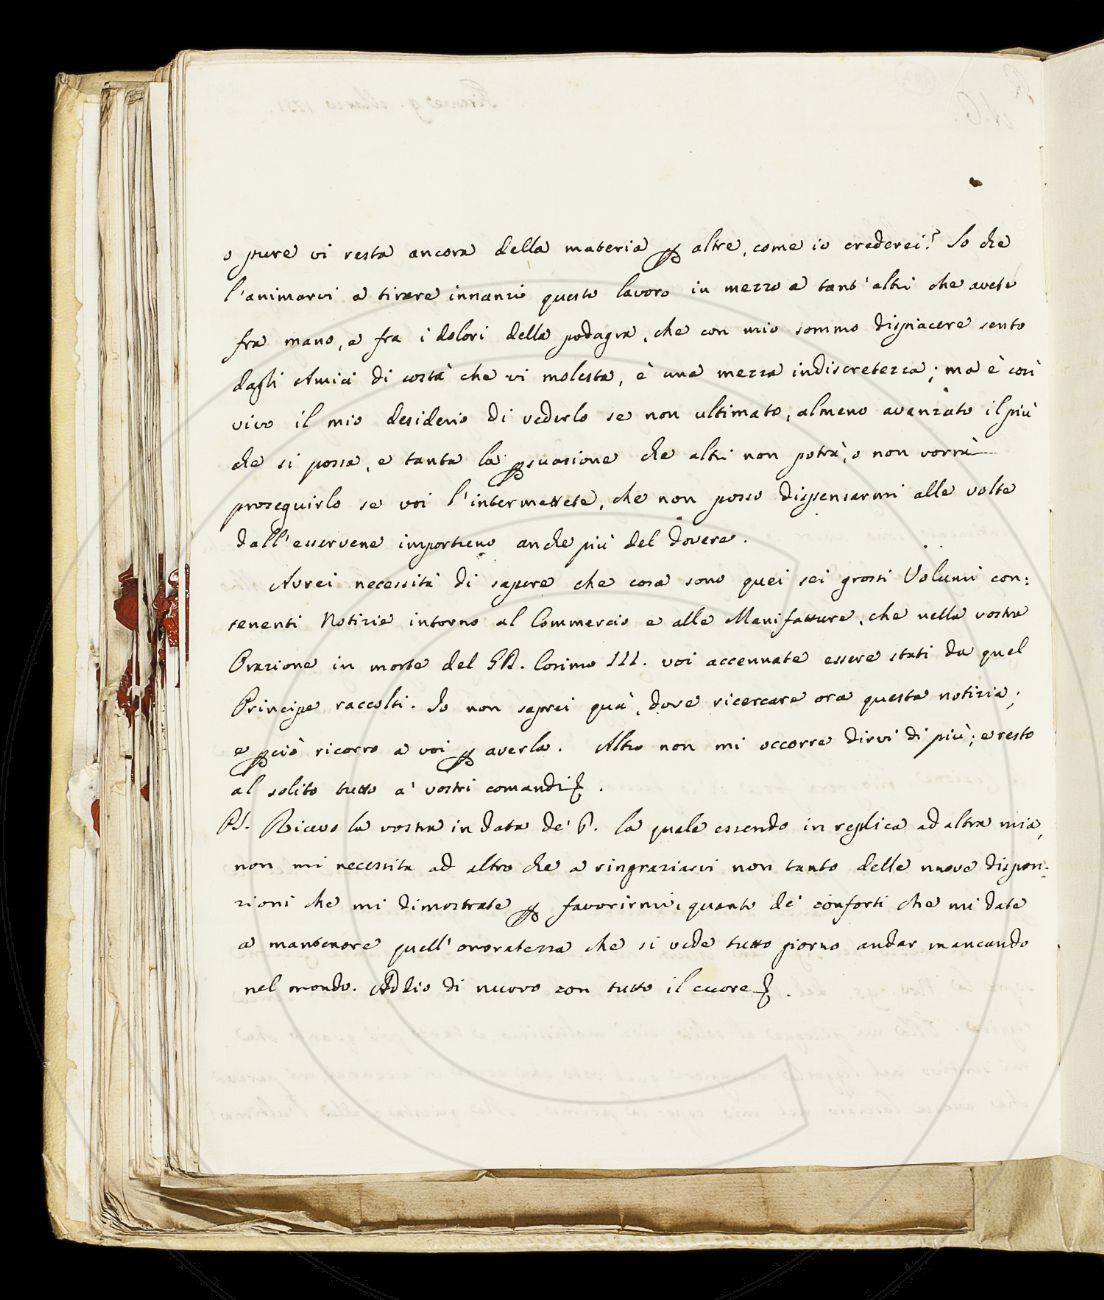 o pure vi resta ancora della materia p altre, come io crederei? So che
l'animarvi a tirare innanzi questo lavoro in mezzo a tant'altri che avete
fra mano, e fra i dolori della podagra, che con mio sommo dispiacere sento
dagli Amici di costà che vi molesta, è una mezza indiscretezza; ma è così
vivo il mio desiderio di vederlo se non ultimato, almeno avanzato il più
che si possa, e tanta la psuasione che altri non potrà, o non vorrà
proseguirlo se voi l'intermettete, che non posso dispensarmi alle volte
dall'esservene importuno anche più del dovere.
Avrei necessità di sapere che cosa sono quei sei grossi Volumi con:
tenenti Notizie intorno al Commercio e alle Manifatture, che nella vostra
Orazione in morte del GD. Cosimo III. voi accennate essere stati da quel
Principe raccolti. Io non saprei quà, dove ricercare ora questa notizia;
e pciò ricorro a voi p averla. Altro non mi occorre dirvi di più; e resto
al solito tutto a' vostri comandi.
PS. Ricevo la vostra in data de' 6. la quale essendo in replica ad altra mia,
non mi necessita ad altro che a ringraziarvi non tanto delle nuove disposi:
zioni che mi dimostrate p favorirmi, quanto de' conforti che mi date
a mantenere quell'onoratezza che si vede tutto giorno andar mancando
nel mondo. Addio di nuovo con tutto il cuore.